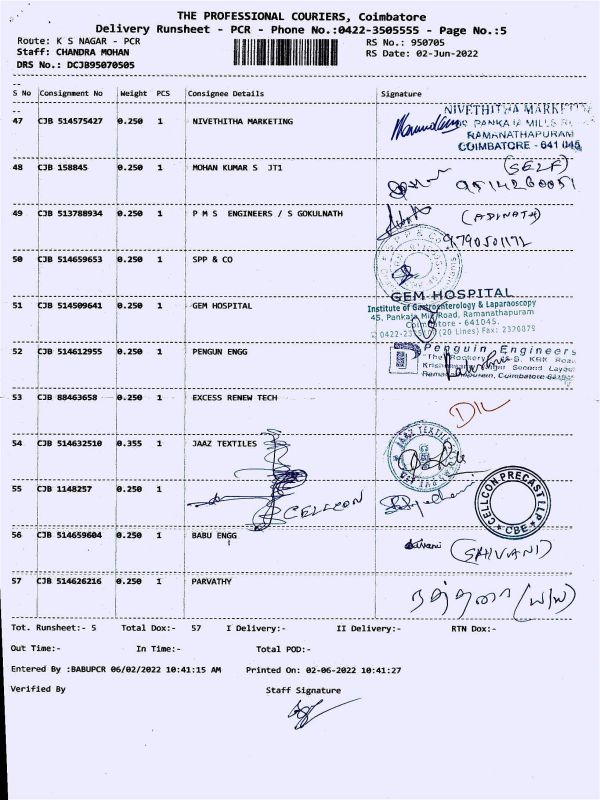 THE PROFESSIONAL COURIERS, Coimbatore
Delivery Runsheet - PCR - Phone No.:0422-3505555 - Page No.:5
Route: K S NAGAR - PCR RS No.: 950705
Staff: CHANDRA MOHAN RS Date: 02-Jun-2022
DRS No.: DCJB95070505
S No Consignment No Weight PCS Consignee Details Signature
47 CJB 514575427 0.250 1 NIVETHITHA MARKETING
NIVETHITHA MARKETING
PANKAJA MILLS
RAMANATHAPURAM
COIMBATORE - 641 045
48 CJB 158845 0.250 1 MOHAN KUMAR S JT1
(SELF)
49 CJB 513788934 0.250 1 P M S ENGINEERS / S GOKULNATH
(ADINATH)
9790501172
50 CJB 514659653 0.250 1 SPP & CO
SPP & CO
51 CJB 514509641 0.250 1 GEM HOSPITAL
GEM HOSPITAL
Institute of Gastroenterology & Laparoscopy
45, Pankaja Mill Road, Ramanathapuram
Coimbatore - 641045.
(20 Lines) Fax: 2320879
52 CJB 514612955 0.250 1 PENGUN ENGG
Penguin Engineers
"The Rookery" KRK Road
Second Layout
Coimbatore
53 CJB 88463658 0.250 1 EXCESS RENEW TECH
DIL
54 CJB 514632510 0.355 1 JAAZ TEXTILES
JAAZ TEXTILES
55 CJB 1148257 0.250 1 CELLCON
CELLCON PRECAST LLP
CBE
56 CJB 514659604 0.250 1 BABU ENGG
(SHIVANI)
57 CJB 514626216 0.250 1 PARVATHY
(W/W)
Tot. Runsheet:- 5 Total Dox:- 57 I Delivery:- II Delivery:- RTN Dox:-
Out Time:- In Time:- Total POD:-
Entered By :BABUPCR 06/02/2022 10:41:15 AM Printed On: 02-06-2022 10:41:27
Verified By Staff Signature